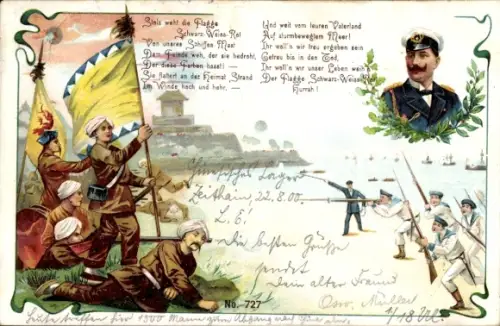 Stolz weht die Flagge
Schwarz-Weiss-Rot
Von unseres Schiffes Mast
Dem Feinde weh, der sie bedroht,
Der diese Farben hasst! —
Sie flattert an des Heimat Strand
Im Winde hoch und hehr, —
Und weit vom teuren Vaterland
Auf sturmbewegtem Meer!
Ihr woll'n wir treu ergeben sein
Getreu bis in den Tod,
Ihr woll'n wir unser Leben weih'n
Der Flagge Schwarz-Weiss-Rot
Hurrah!
Chinesisches Lager
Zeithain, 22.8.00.
L. E.!
die besten Grüsse
sendet
Dein alter Freund
Osw. Müller
No. 727
Heute treffen hier 1500 Mann zum Abgang nach